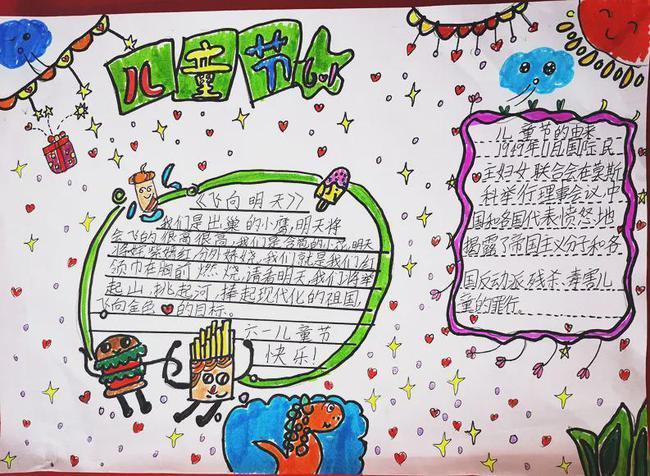 儿童节
《飞向明天》
我们是出巢的小鹰,明天将
会飞的很高很高,我们是含苞的小花,明天
将姹紫嫣红分外娇娆,我们就是我们红
领巾在胸前燃烧,请看明天,我们将举
起山,挑起河,捧起现代化的祖国,
飞向金色的目标。
六一儿童节
快乐!
儿童节的由来
1949年11月国际民
主妇女联合会在莫斯
科举行理事会议,中
国和各国代表愤然地
揭露了帝国主义分子和各
国反动派残杀、毒害儿
童的罪行。